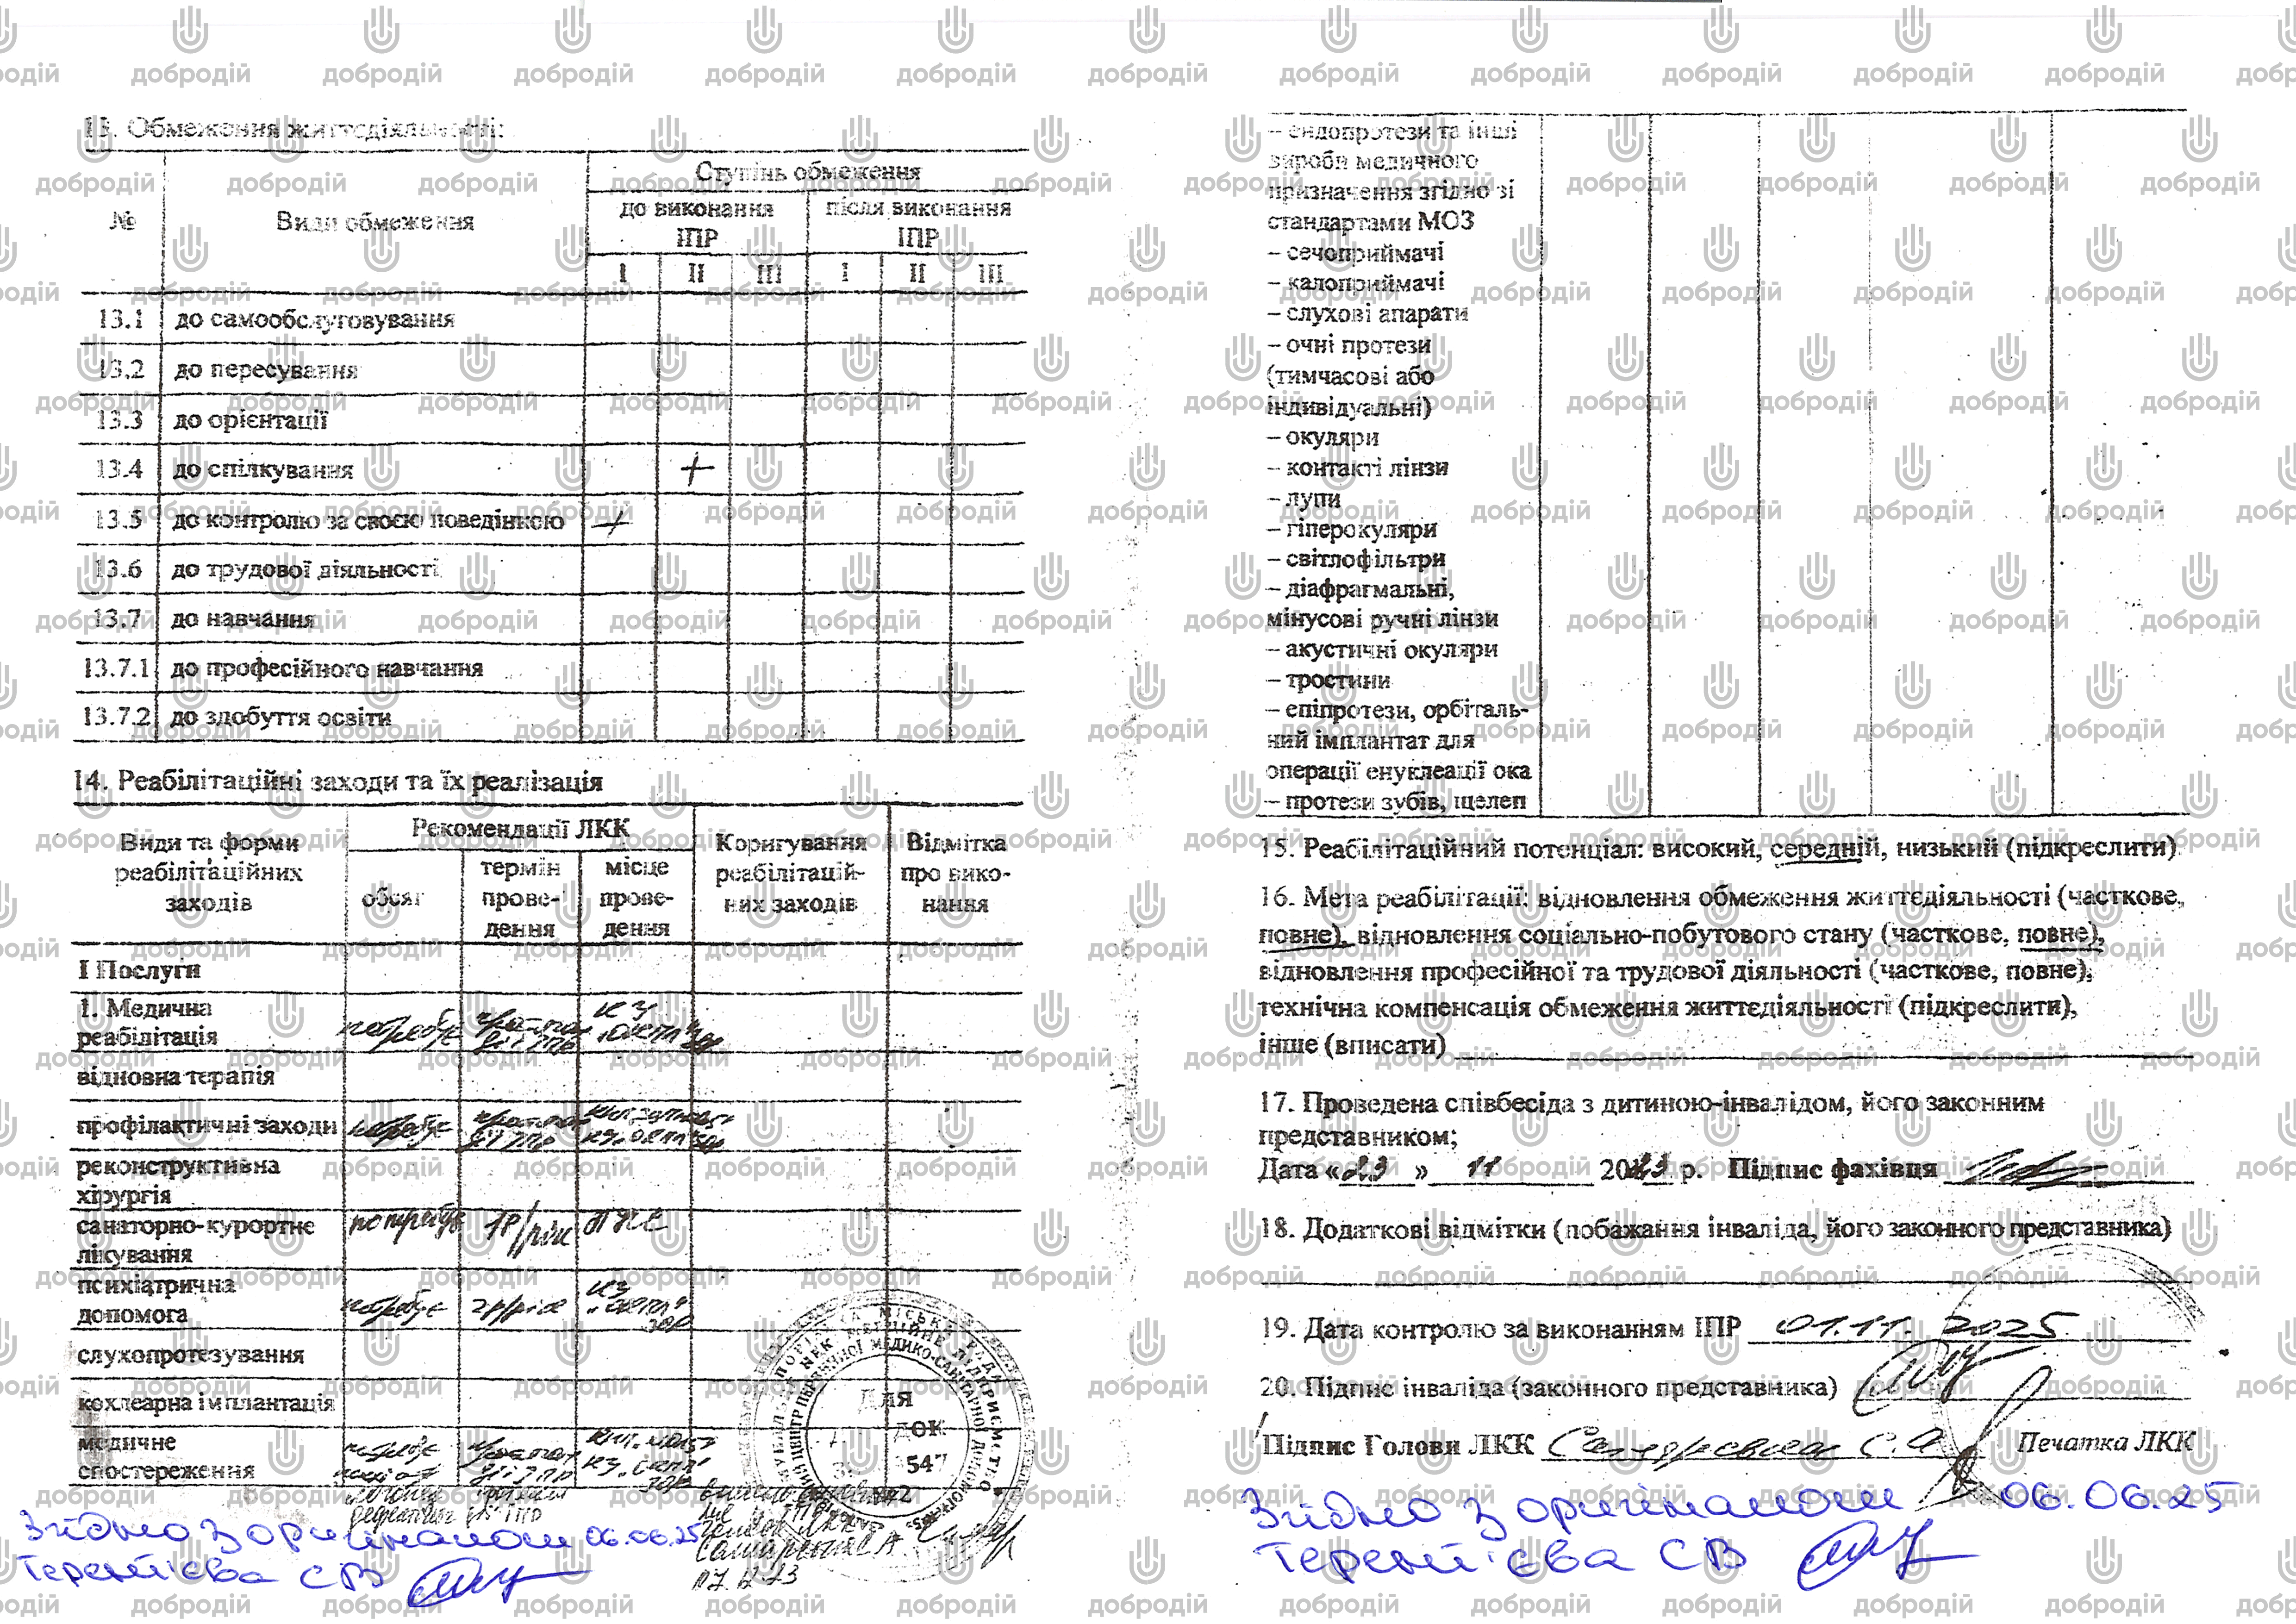 13. Обмеження життєдіяльності:
№ Види обмеження Ступінь обмеження
до виконання ІПР після виконання ІПР
І ІІ ІІІ І ІІ ІІІ
13.1 до самообслуговування
13.2 до пересування
13.3 до орієнтації
13.4 до спілкування +
13.5 до контролю за своєю поведінкою +
13.6 до трудової діяльності
13.7 до навчання
13.7.1 до професійного навчання
13.7.2 до здобуття освіти
14. Реабілітаційні заходи та їх реалізація
Види та форми реабілітаційних заходів
Рекомендації ЛКК
обсяг
термін прове-
дення
місце прове-
дення
Коригування реабілітацій-
них заходів
Відмітка про вико-
нання
І Послуги
1. Медична
реабілітація потребує
відновна терапія
профілактичні заходи потребує
реконструктивна
хірургія
санаторно-курортне
лікування потребує 1р/рік
психіатрична
допомога потребує 2р/рік КЗ
слухопротезування
кохлеарна імплантація
медичне
спостереження
ДЛЯ
ДОК
547
Згідно з оригіналом 06.06.25
Терентієва СВ
– ендопротези та інші
вироби медичного
призначення згідно зі
стандартами МОЗ
– сечоприймачі
– калоприймачі
– слухові апарати
– очні протези
(тимчасові або
індивідуальні)
– окуляри
– контакті лінзи
– лупи
– гіперокуляри
– світлофільтри
– діафрагмальні,
мінусові ручні лінзи
– акустичні окуляри
– тростини
– епіпротези, орбіталь-
ний імплантат для
операції енуклеації ока
– протези зубів, щелеп
15. Реабілітаційний потенціал: високий, середній, низький (підкреслити).
16. Мета реабілітації: відновлення обмеження життєдіяльності (часткове,
повне), відновлення соціально-побутового стану (часткове, повне),
відновлення професійної та трудової діяльності (часткове, повне),
технічна компенсація обмеження життєдіяльності (підкреслити),
інше (вписати)
17. Проведена співбесіда з дитиною-інвалідом, його законним
представником;
Дата «23» 11 2023 р. Підпис фахівця
18. Додаткові відмітки (побажання інваліда, його законного представника)
19. Дата контролю за виконанням ІПР 01.11. 2025
20. Підпис інваліда (законного представника)
Підпис Голови ЛКК Печатка ЛКК
Згідно з оригіналом 06.06.25
Терентієва СВ
добродій